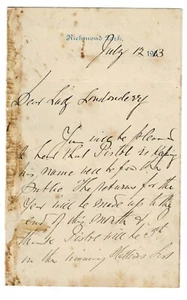 Richmond
July 12 1913
Dear Lady Londonderry
You will be pleased
to hear that Pistol
his name will be for the
Public The returns for the
Year will be made up to the
end of this month &
I think Pistol will be 3rd
on the winning Stallions list